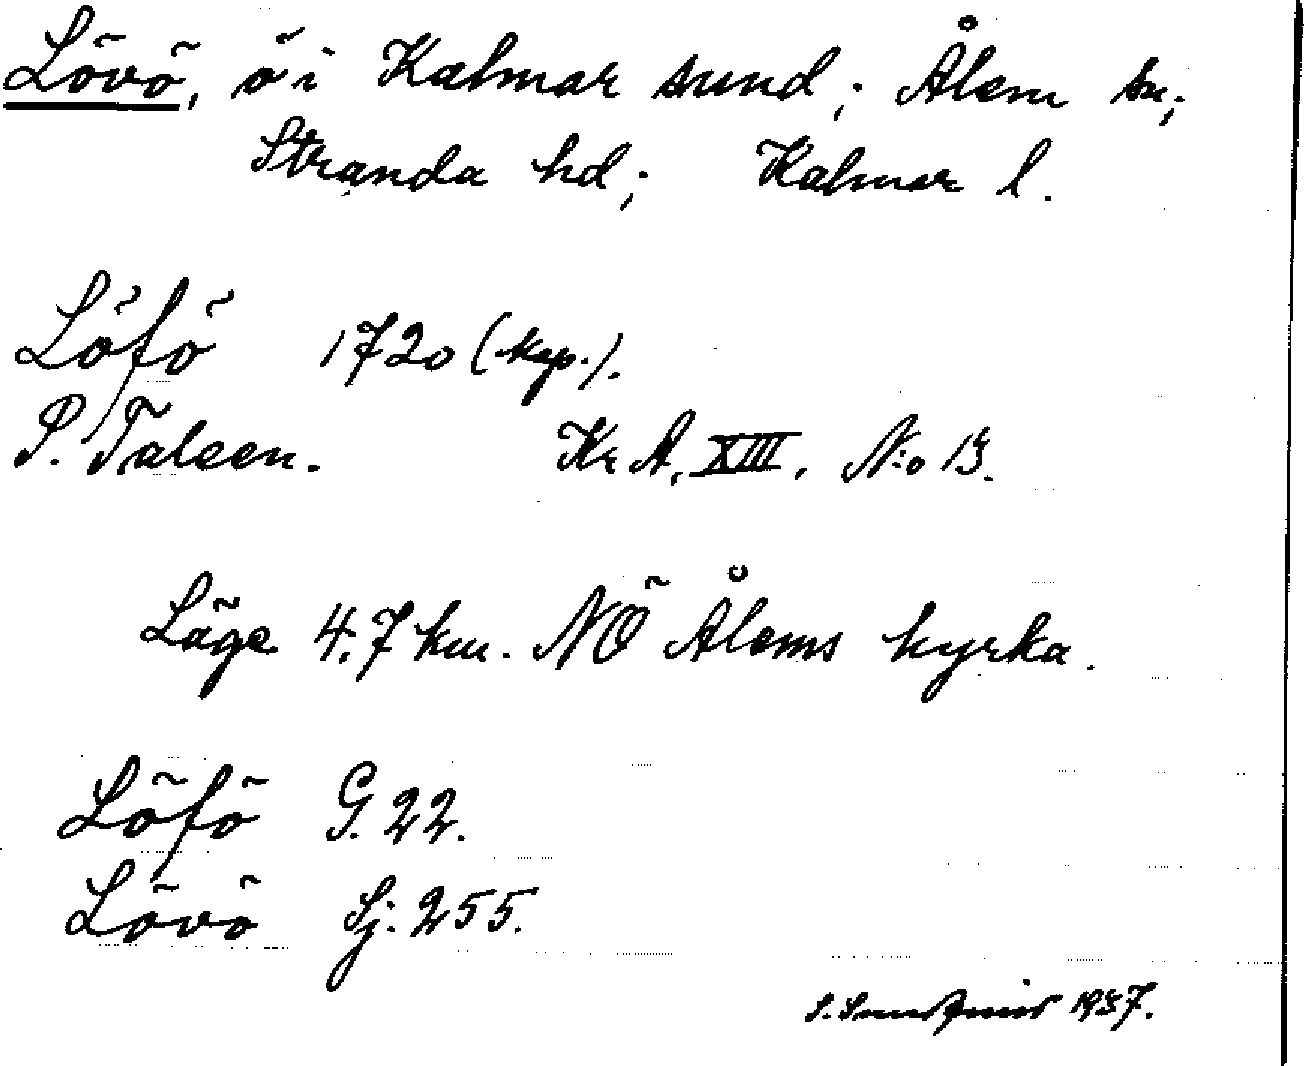 Lövö, ö i Kalmar sund; Ålem sn;
Stranda hd; Kalmar l.
Löfö 1720 (kop.).
P. Taleen. Kr A, XIII, N:o 13.
Läge 4,7 km. NÖ Ålems kyrka.
Löfö G. 22.
Lövö Sj. 255.
S. 1937.